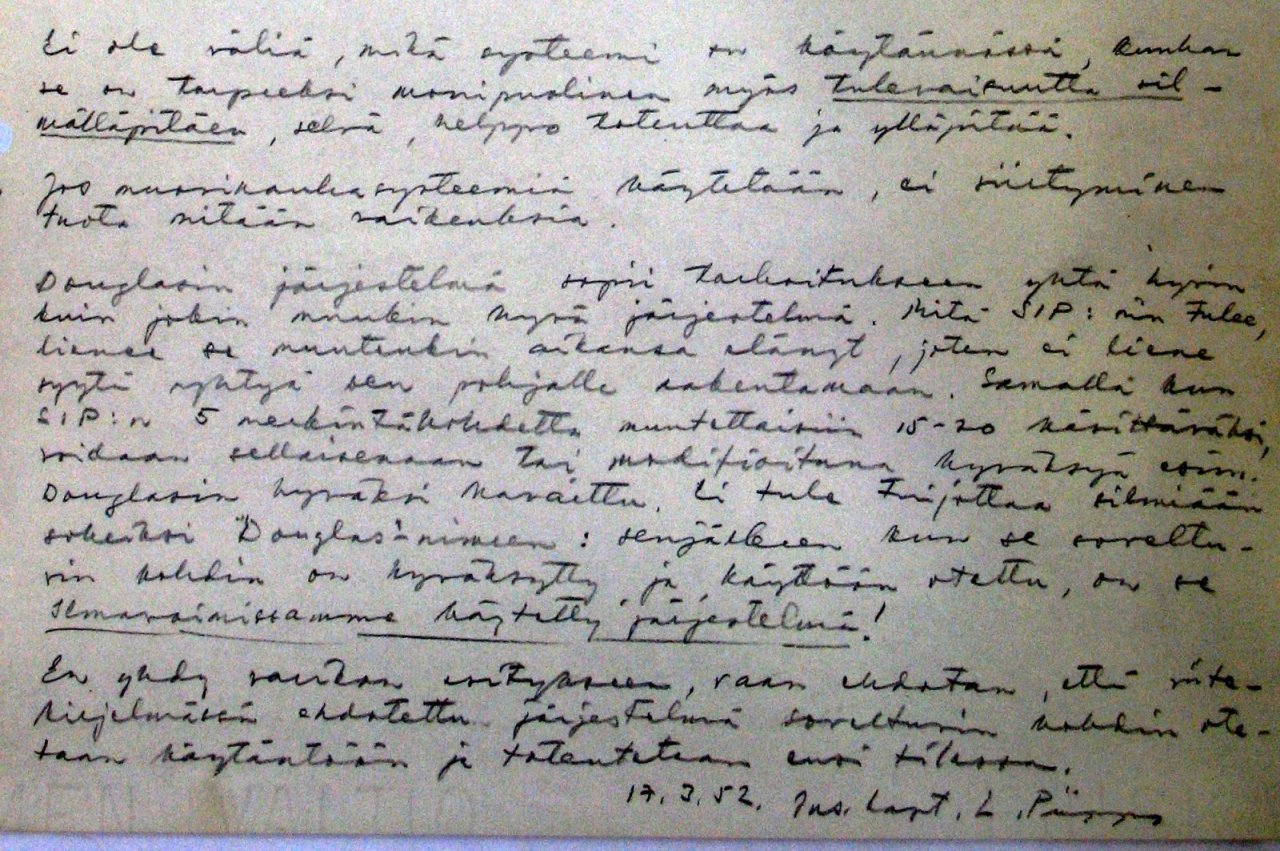 Ei ole väliä, mikä systeemi on käytännössä, kunhan
se on tarpeeksi monipuolinen myös tulevaisuutta sil-
mälläpitäen, selvä, helppo toteuttaa ja ylläpitää.
Jos vuosikausasysteemiä käytetään, ei siirtyminen
tuota mitään vaikeuksia.
Douglasin järjestelmä sopii tarkoitukseen yhtä hyvin
kuin jokin muukin hyvä järjestelmä. Mitä SIP:iin tulee,
lienee se muutenkin aikansa elänyt, joten ei liene
syytä ryhtyä sen pohjalle rakentamaan. Samalla kun
SIP:n 5 merkintäkohdetta muutettaisiin 15-20 käsittäväksi,
voidaan sellaisenaan tai modifioituna hyväksyä esim.
Douglasin hyväksi havaittu. Ei tule tuijottaa silmiään
sokeiksi "Douglas"-nimeen: senjälkeen kun se soveltu-
vin kohdin on hyväksytty ja käyttöön otettu, on se
ilmavoimissamme käytetty järjestelmä!
En yhdy esitykseen, vaan ehdotan, että viite-
kirjelmässä ehdotettu järjestelmä soveltuvin kohdin ote-
taan käytäntöön ja toteutetaan ensi tilassa.
17.3.52. Ins. kapt. L.